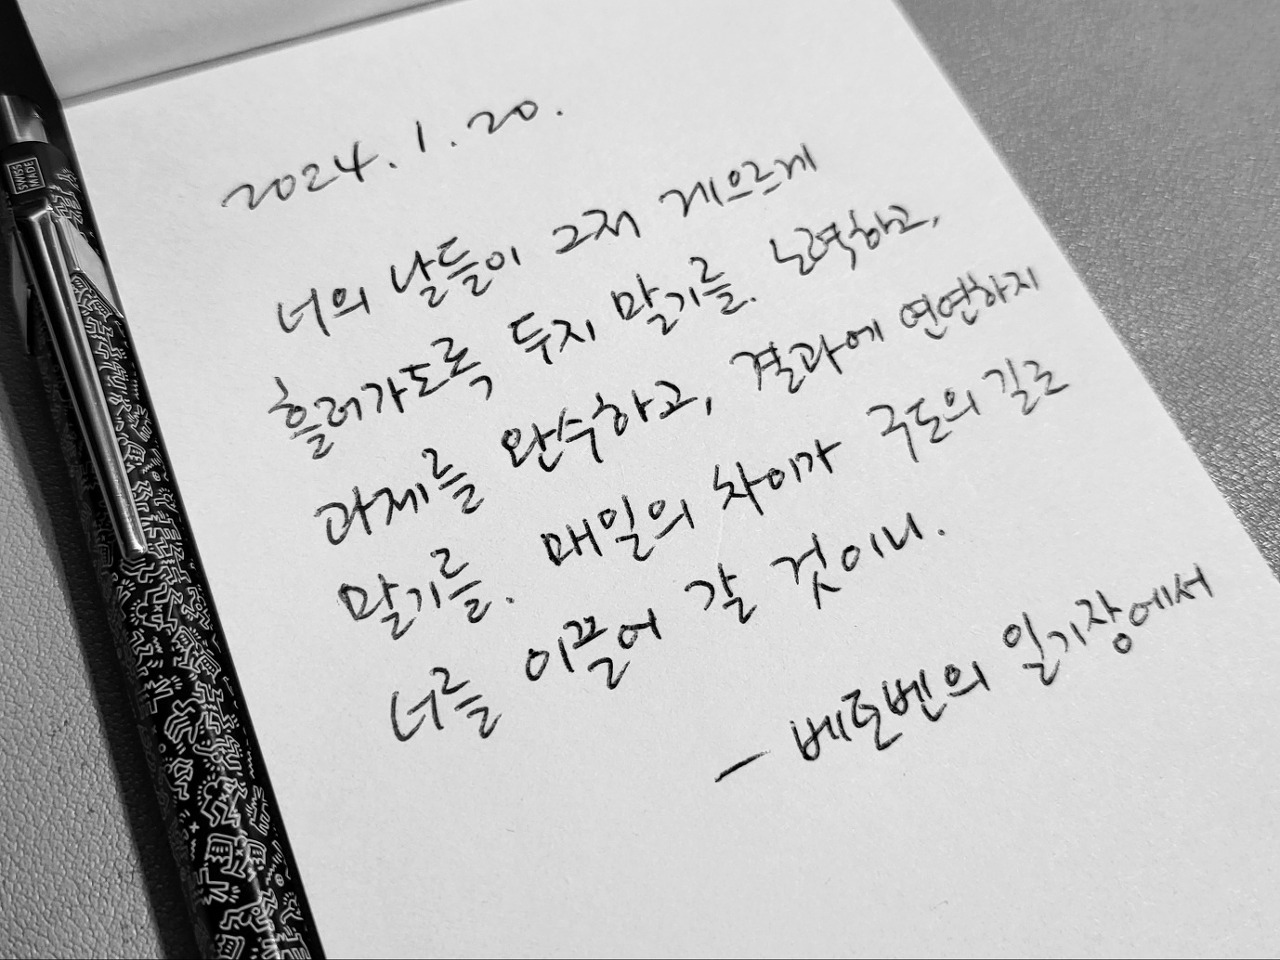 SWISS
MADE
2024. 1. 20.
너의 날들이 그저 게으르게
흘러가도록 두지 말기를. 노력하고,
과제를 완수하고, 결과에 연연하지
말기를. 매일의 차이가 구도의 길로
너를 이끌어 갈 것이니.
— 베토벤의 일기장에서